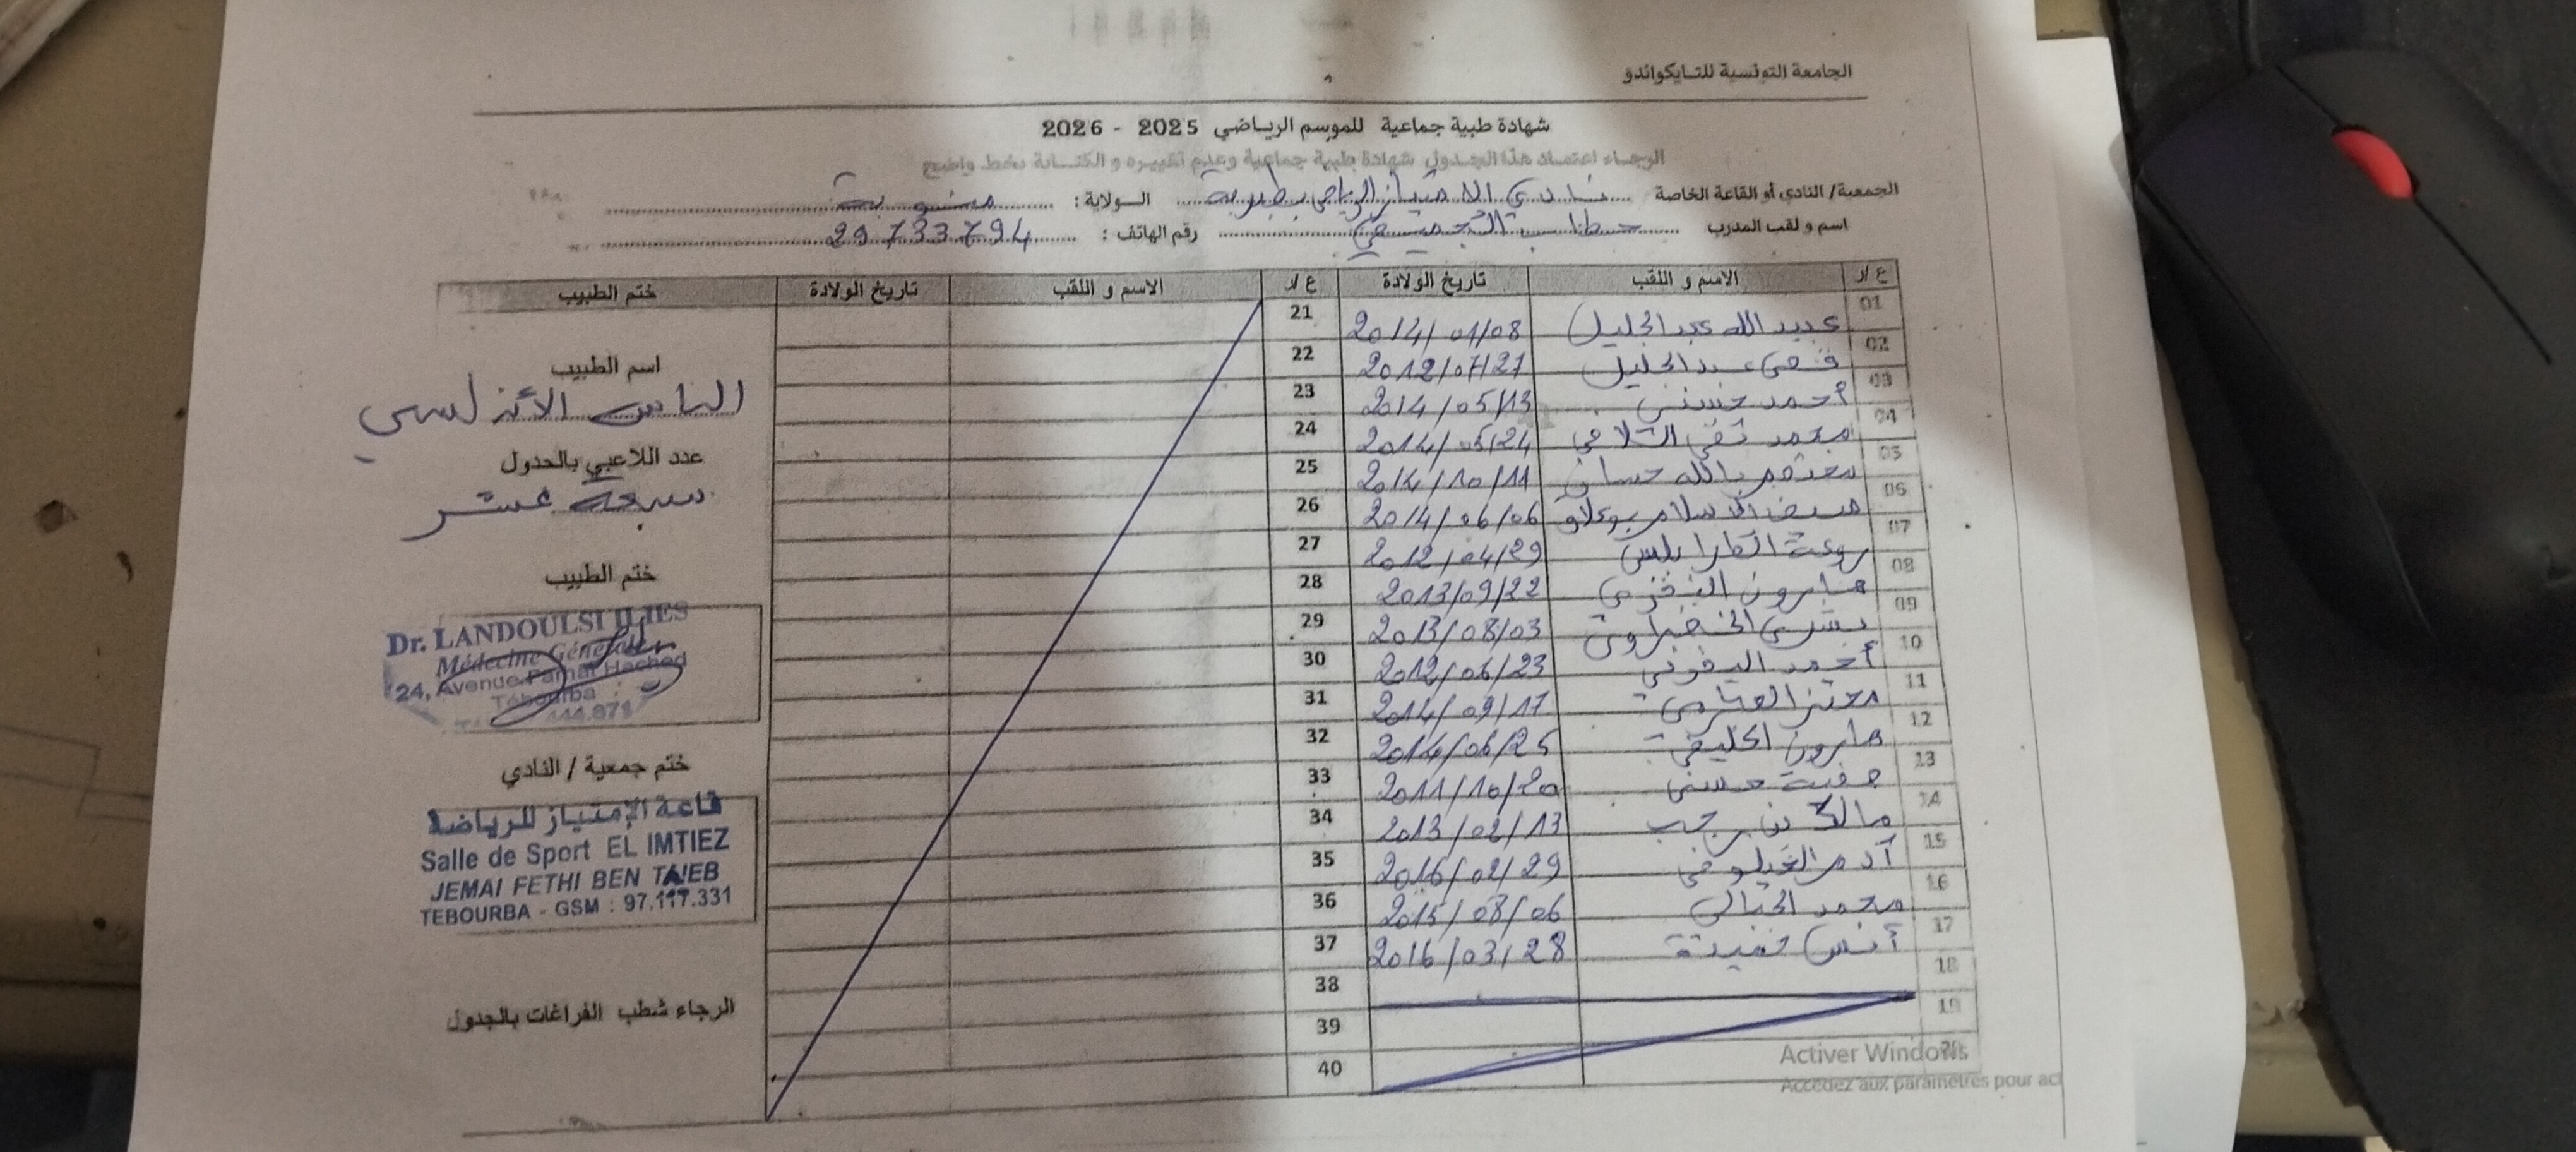 الجامعة التونسية للتايكواندو
شهادة طبية جماعية للموسم الرياضي 2025 - 2026
الرجاء اعتماد هذا الجدول شهادة طبية جماعية وعدم تغييره و الكتابة بخط واضح
الجمعية/ النادي أو القاعة الخاصة نادي الامتياز الرياضي بطبربة الولاية : منوبة
اسم و لقب المدرب خطاب رقم الهاتف : 29733794
ع/ر الاسم و اللقب تاريخ الولادة ع/ر الاسم و اللقب تاريخ الولادة ختم الطبيب
01 عبيد الله عبد الجليل 2014/01/08 21
02 عبد الجليل 2012/07/27 22
03 أحمد حسني 2014/05/13 23
04 محمد تقي 2014/05/24 24
05 معتصم بالله حساني 2014/10/11 25
06 سيف الاسلام بوعلاق 2014/06/06 26
07 روعة الطرابلسي 2012/04/29 27
08 هارون النفزي 2013/09/22 28
09 بشرى الخضراوي 2013/08/03 29
10 أحمد اليفرني 2012/06/23 30
11 معتز العياري 2014/09/17 31
12 هارون الخليفي 2014/06/25 32
13 صفية حسني 2011/10/20 33
14 مالك بن رجب 2013/02/13 34
15 آدم الغيلوفي 2016/02/29 35
16 محمد الجبالي 2015/08/06 36
17 أنس 2016/03/28 37
18 38
19 39
20 40
اسم الطبيب
الياس الأندلسي
عدد اللاعبي بالجدول
سبعة عشر
ختم الطبيب
Dr. LANDOULSI ILIES
Médecine Générale
24, Avenue Farhat Hached
Tébourba
ختم جمعية / النادي
قاعة الإمتياز للرياضة
Salle de Sport EL IMTIEZ
JEMAI FETHI BEN TAIEB
TEBOURBA - GSM : 97.117.331
الرجاء شطب الفراغات بالجدول
Activer Windows
Accédez aux paramètres pour act